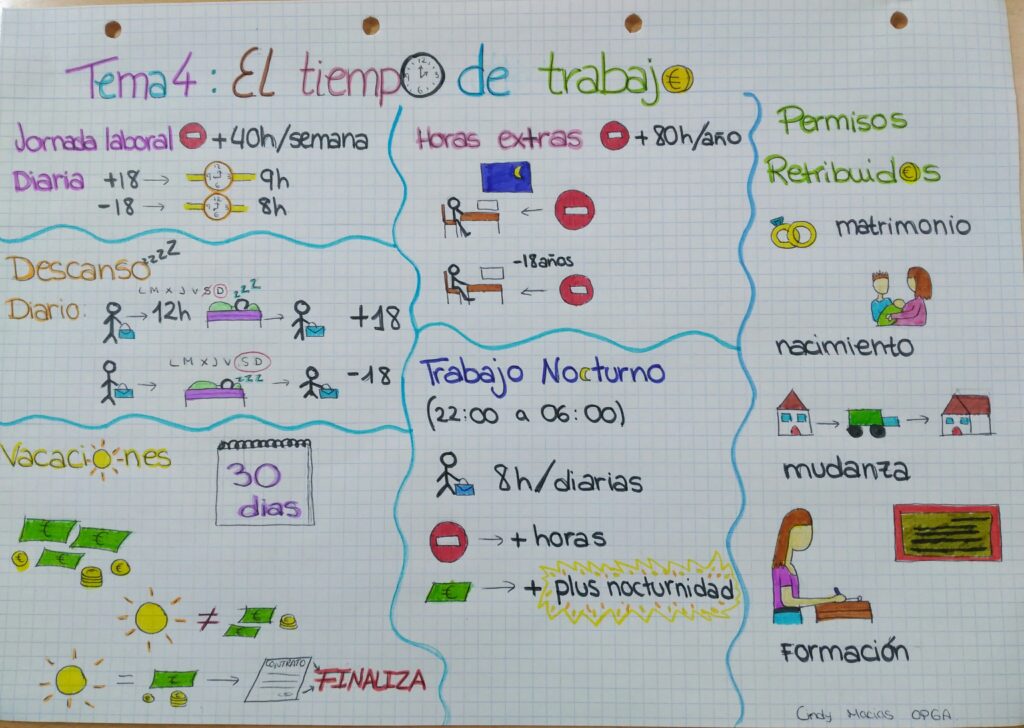 Tema 4: El tiempo de trabajo
Jornada laboral +40h/semana
Diaria +18 → 9h
-18 → 8h
Descanso zzzZ
Diario:
L M X J V S D
→ 12h zzz → +18
L M X J V S D
→ zzz → -18
Vacaciones
30
dias
€ €
€ € €
≠ €
= € → CONTRATO FINALIZA
Horas extras +80h/año
←
-18años
←
Trabajo Nocturno
(22:00 a 06:00)
8h/diarias
→ + horas
€ → + plus nocturnidad
Permisos
Retribuidos
matrimonio
nacimiento
mudanza
Formación
Cindy Macias OPGA